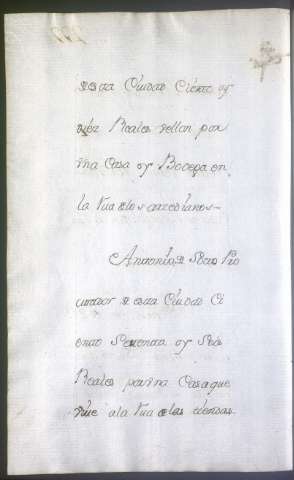 de esta Ciudad Ciento y
diez Reales vellon por
vna Casa y Bodega en
la Rua de los
Antonio de Pro
curador de esta Ciudad Ci
ento Sesenta y Seis
Reales por vna Casa que
viue a la Rua de las tiendas.